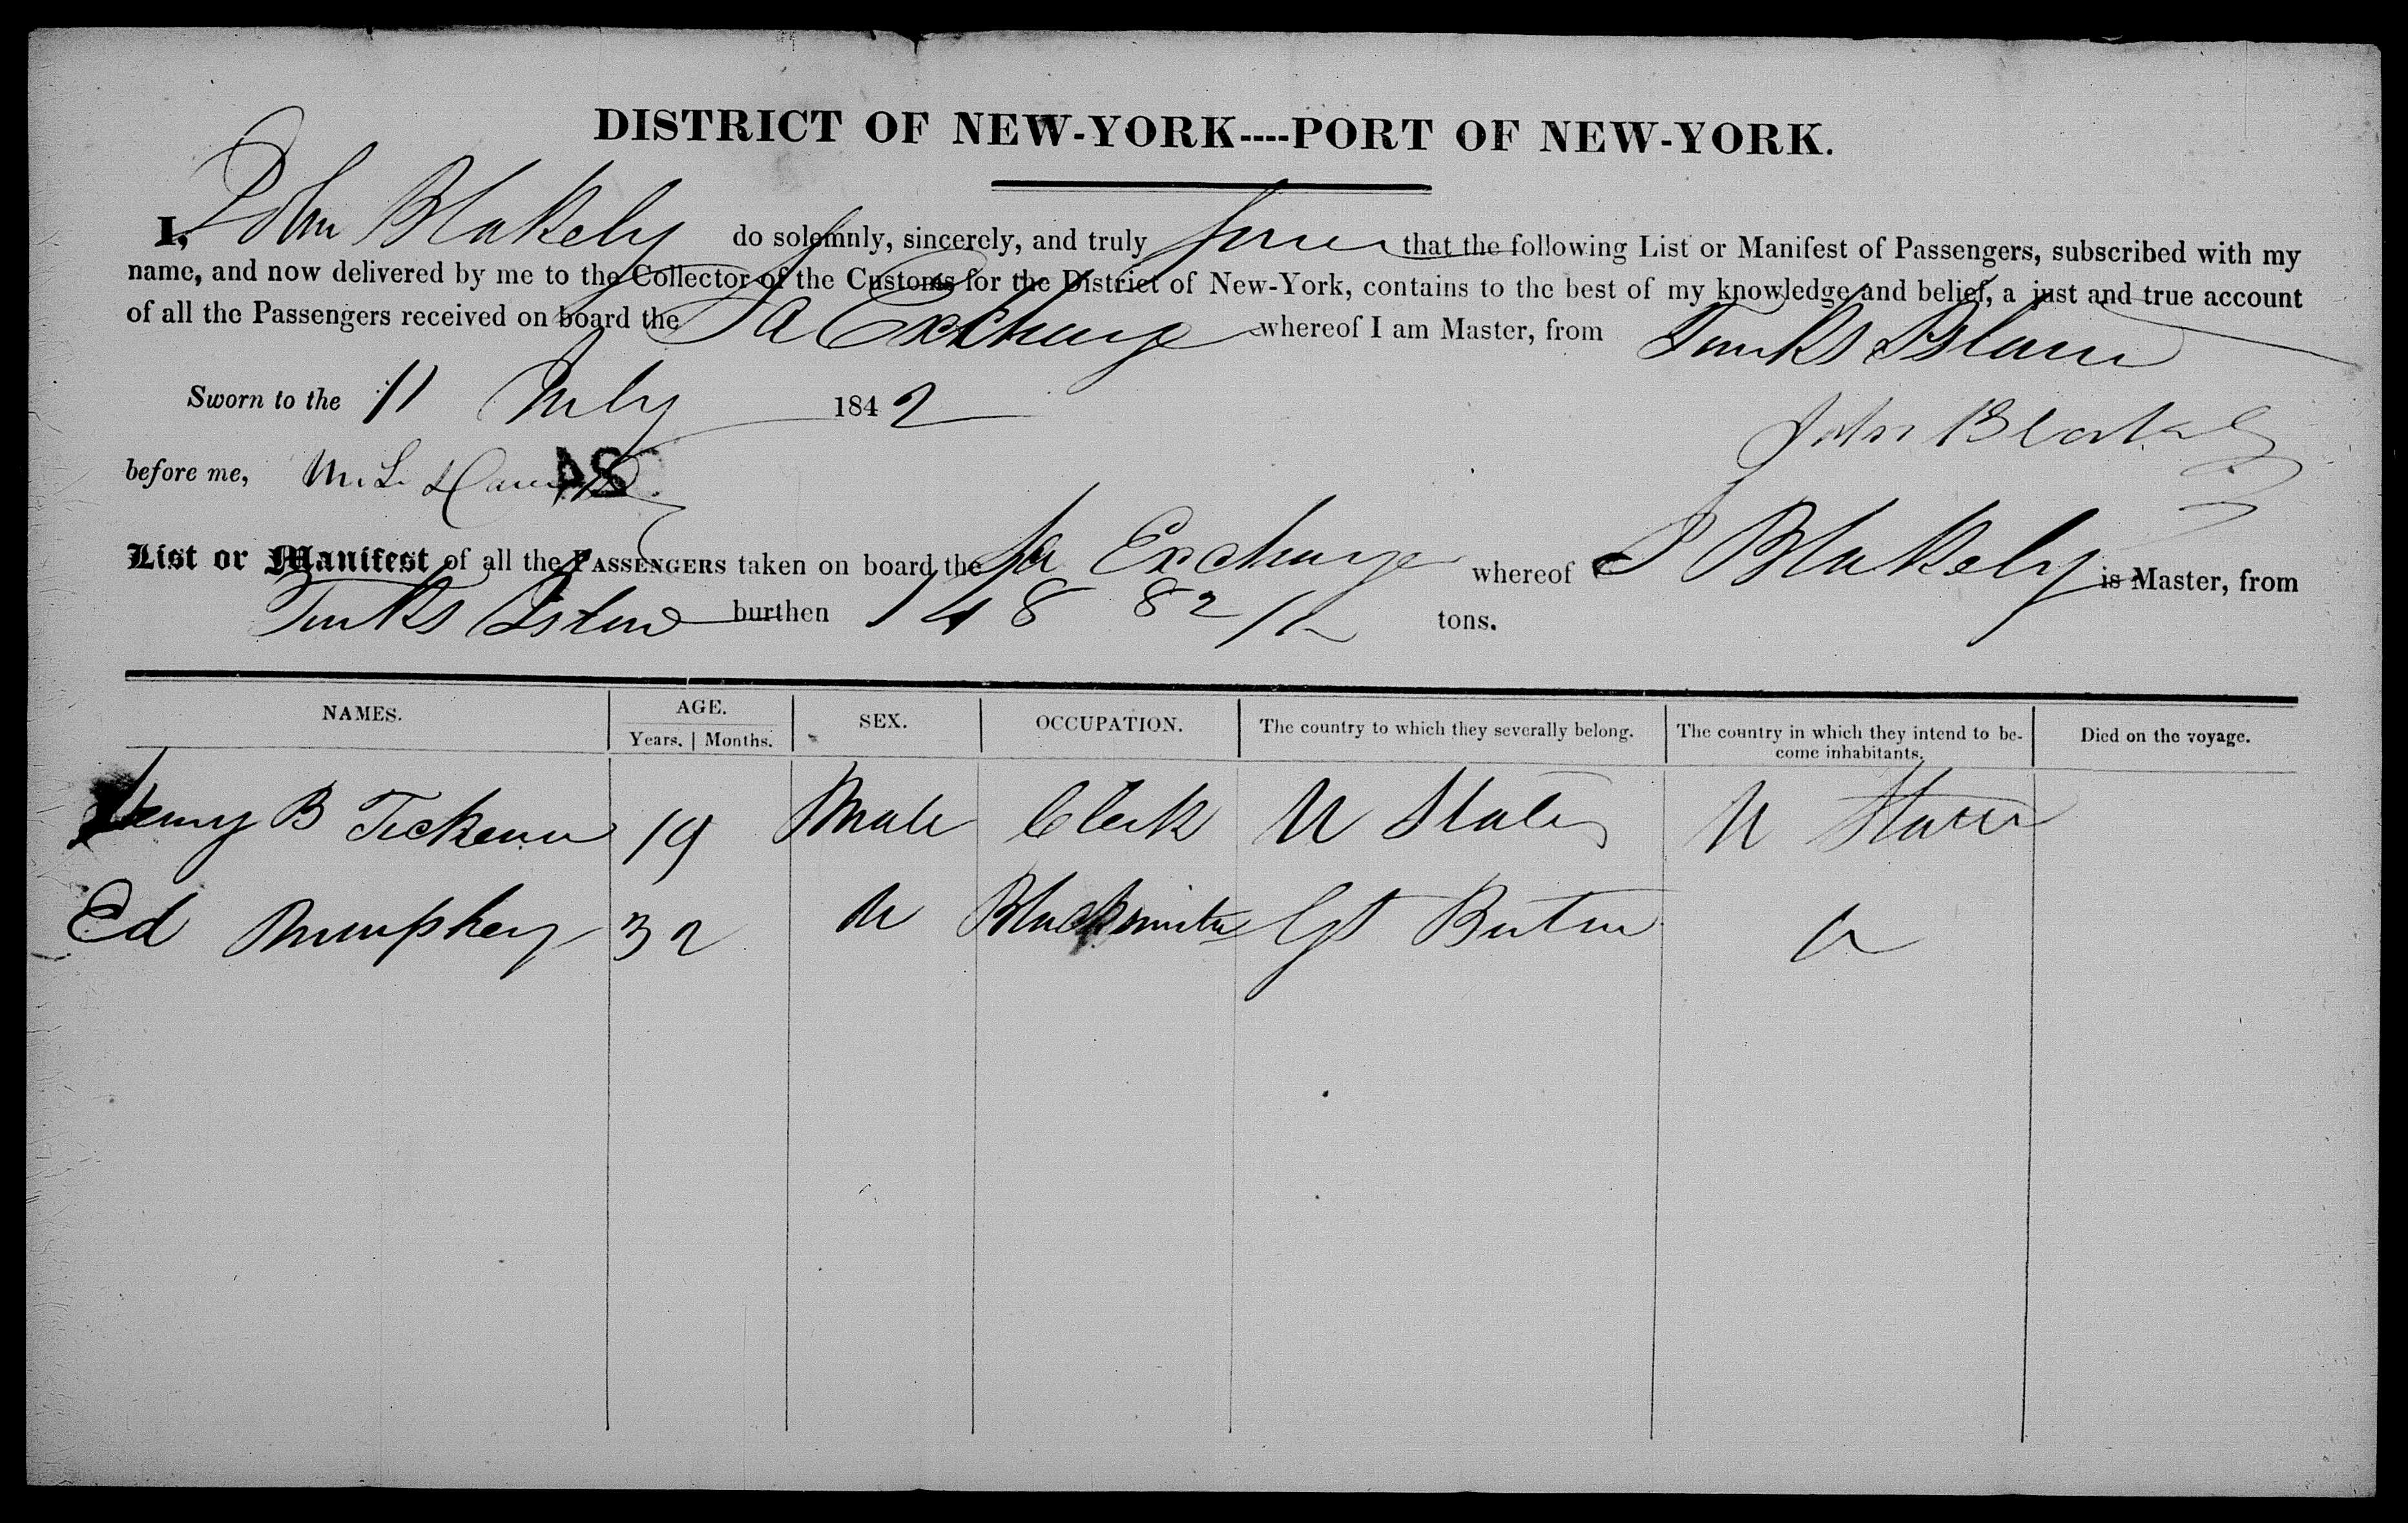 DISTRICT OF NEW-YORK----PORT OF NEW-YORK.
I, John Blakely do solemnly, sincerely, and truly swear that the following List or Manifest of Passengers, subscribed with my
name, and now delivered by me to the Collector of the Customs for the District of New-York, contains to the best of my knowledge and belief, a just and true account
of all the Passengers received on board the Exchange whereof I am Master, from Turks Island
Sworn to the 11 July 1842
John Blakely
before me, M. L.
List or Manifest of all the PASSENGERS taken on board the Exchange whereof J Blakely is Master, from
Turks Island burthen 148 82/ tons.
NAMES. AGE. SEX. OCCUPATION. The country to which they severally belong. The country in which they intend to be- Died on the voyage.
Years. Months. come inhabitants.
Henry B 19 Male Clerk U States U States
Ed Mumphey 32 Blacksmith Gt Britain